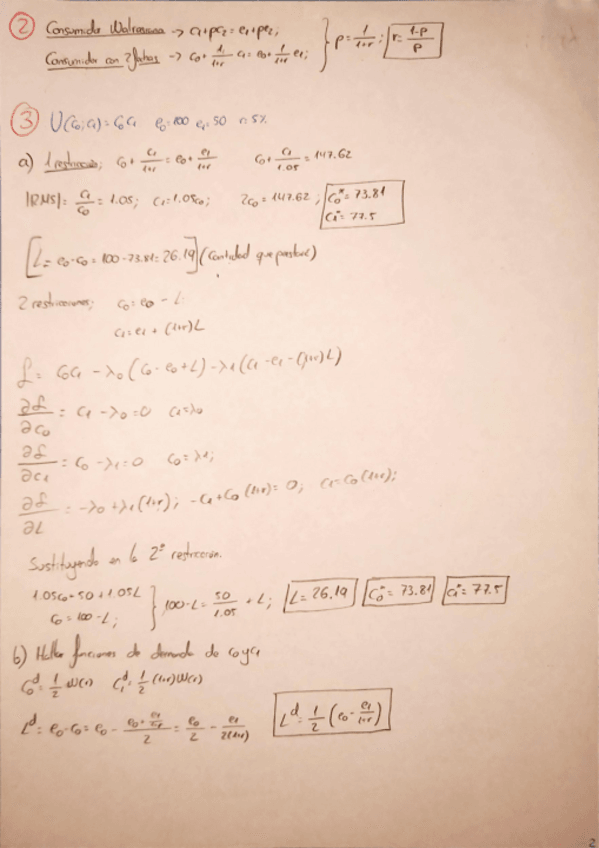 ② Consumidor Walrasiano → c₁+pc₂=e₁+pe₂;
Consumidor con 2 fechas → c₀+ 1/(1+r) c₁= e₀+ 1/(1+r) e₁; } p= 1/(1+r); r= (1-p)/p
③ U(c₀;c₁)=c₀c₁ e₀=100 e₁=50 r=5%
a) 1 restricción; c₀+ c₁/(1+r) = e₀+ e₁/(1+r) c₀+ c₁/1.05 = 147.62
|RMS|= c₁/c₀ = 1.05; c₁=1.05c₀; 2c₀=147.62; c₀*=73.81
c₁*=77.5
[L=e₀-c₀=100-73.81=26.19] (Cantidad que prestaré)
2 restricciones; c₀=e₀-L
c₁=e₁+(1+r)L
ℒ= c₀c₁-λ₀(c₀-e₀+L)-λ₁(c₁-e₁-(1+r)L)
∂ℒ/∂c₀ = c₁-λ₀=0 c₁=λ₀
∂ℒ/∂c₁ = c₀-λ₁=0 c₀=λ₁;
∂ℒ/∂L = -λ₀+λ₁(1+r); -c₁+c₀(1+r)=0; c₁=c₀(1+r);
Sustituyendo en la 2ª restricción.
1.05c₀=50+1.05L
c₀=100-L; } 100-L= 50/1.05 +L; L=26.19 c₀*=73.81 c₁*=77.5
b) Hallar funciones de demanda de c₀ y c₁
c₀ᵈ= 1/2 W(r) c₁ᵈ= 1/2 (1+r)W(r)
Lᵈ= e₀-c₀= e₀- (e₀+ e₁/(1+r))/2 = e₀/2 - e₁/2(1+r) Lᵈ= 1/2 (e₀- e₁/(1+r))
2